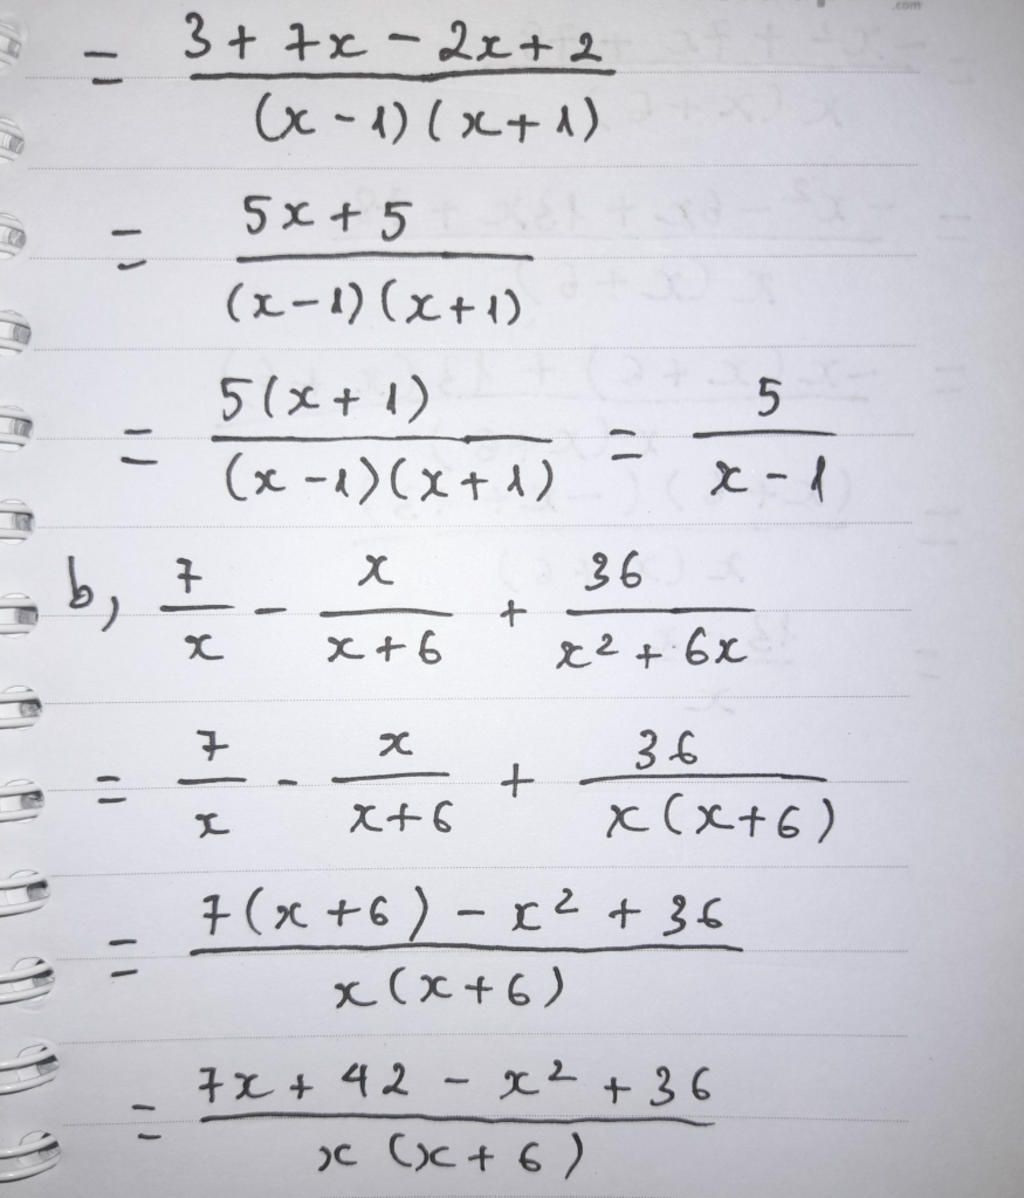 = (3 + 7x - 2x + 2) / ((x - 1)(x + 1))
= (5x + 5) / ((x - 1)(x + 1))
= (5(x + 1)) / ((x - 1)(x + 1)) = 5 / (x - 1)
b, 7/x - x/(x + 6) + 36/(x² + 6x)
= 7/x - x/(x + 6) + 36/(x(x + 6))
= (7(x + 6) - x² + 36) / (x(x + 6))
= (7x + 42 - x² + 36) / (x(x + 6))